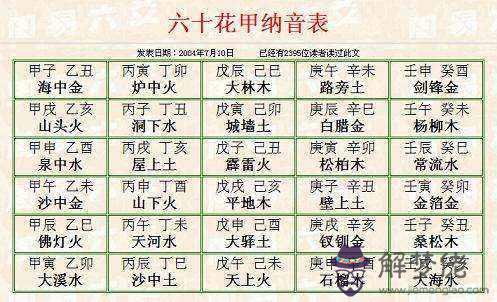 六十花甲纳音表
发表日期：2004年7月10日 已经有2395位读者读过此文
甲子 乙丑 丙寅 丁卯 戊辰 己巳 庚午 辛未 壬申 癸酉
海中金 炉中火 大林木 路旁土 剑锋金
甲戌 乙亥 丙子 丁丑 戊寅 己卯 庚辰 辛巳 壬午 癸未
山头火 涧下水 城墙土 白腊金 杨柳木
甲申 乙酉 丙戌 丁亥 戊子 己丑 庚寅 辛卯 壬辰 癸巳
泉中水 屋上土 霹雷火 松柏木 常流水
甲午 乙未 丙申 丁酉 戊戌 己亥 庚子 辛丑 壬寅 癸卯
沙中金 山下火 平地木 壁上土 金箔金
甲辰 乙巳 丙午 丁未 戊申 己酉 庚戌 辛亥 壬子 癸丑
佛灯火 天河水 大驿土 钗钏金 桑松木
甲寅 乙卯 丙辰 丁巳 戊午 己未
大溪水 沙中土 天上火 石榴木 大海水
解梦佬